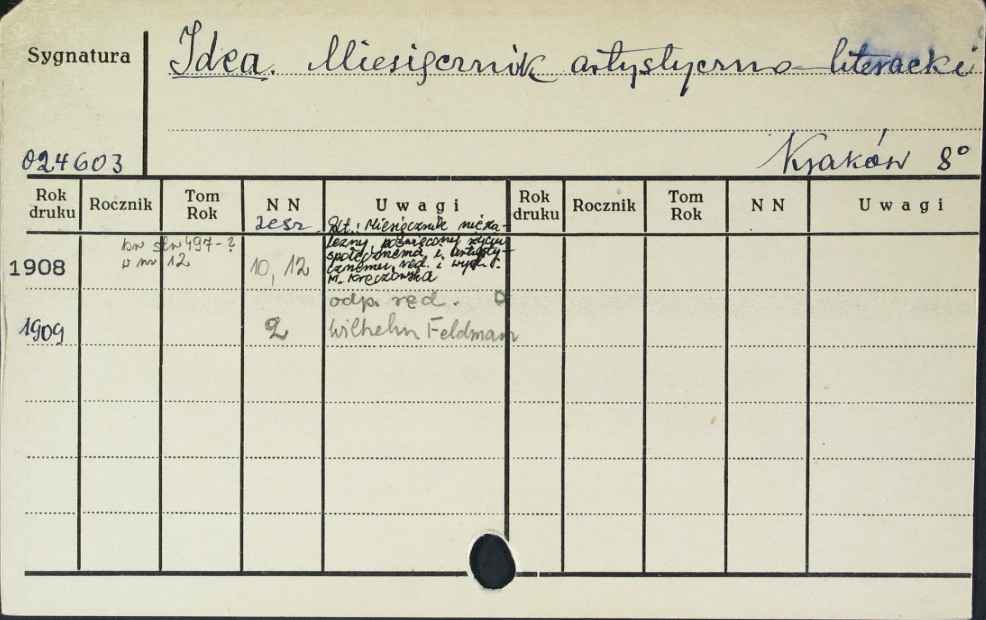 Sygnatura
Idea. Miesięcznik artystyczno-literacki
024603
Kraków 8°
Rok druku Rocznik Tom Rok N N Uwagi Rok druku Rocznik Tom Rok N N Uwagi
zesz.
Miesięcznik nieza-
leżny poświęcony życiu
społecznemu i artysty-
cznemu, red. i wyd.
1908 w nr 12 10, 12
odp. red.
1909 2 Wilhelm Feldman